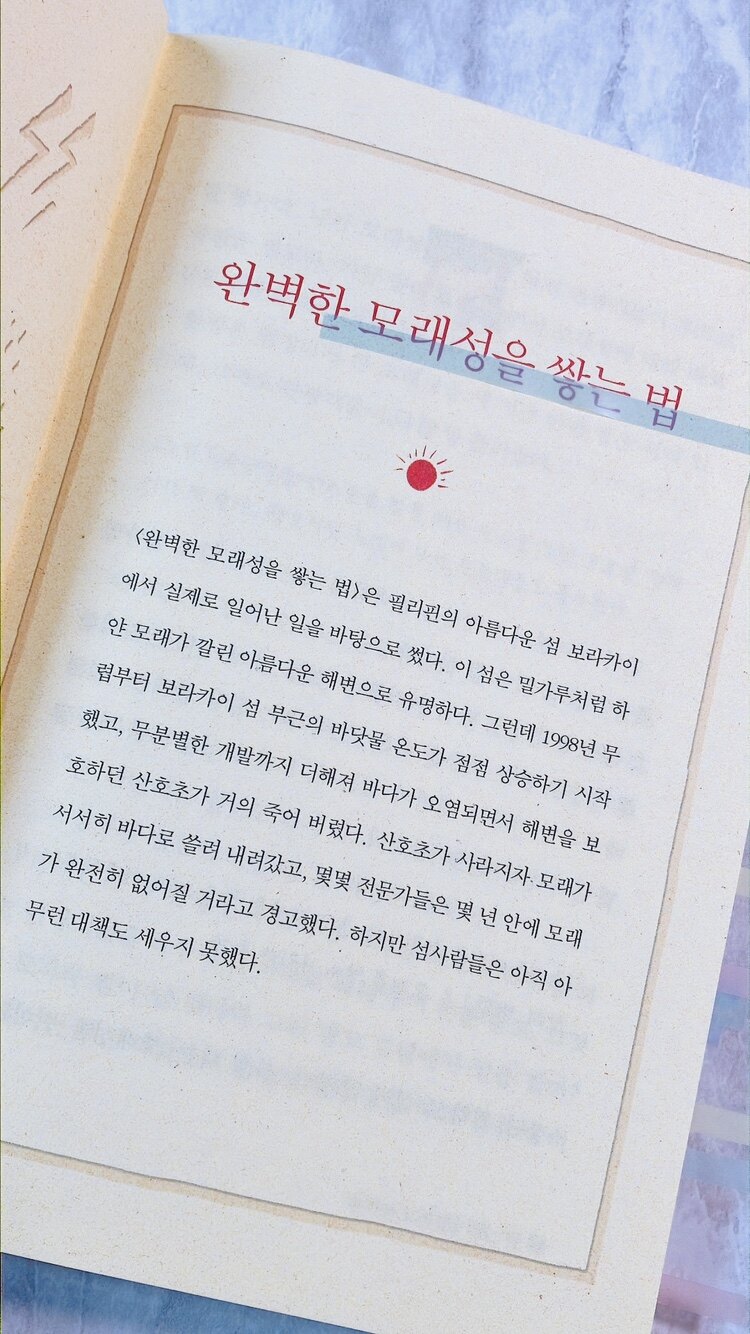 완벽한 모래성을 쌓는 법
〈완벽한 모래성을 쌓는 법〉은 필리핀의 아름다운 섬 보라카이
에서 실제로 일어난 일을 바탕으로 썼다. 이 섬은 밀가루처럼 하
얀 모래가 깔린 아름다운 해변으로 유명하다. 그런데 1998년 무
렵부터 보라카이 섬 부근의 바닷물 온도가 점점 상승하기 시작
했고, 무분별한 개발까지 더해져 바다가 오염되면서 해변을 보
호하던 산호초가 거의 죽어 버렸다. 산호초가 사라지자 모래가
서서히 바다로 쓸려 내려갔고, 몇몇 전문가들은 몇 년 안에 모래
가 완전히 없어질 거라고 경고했다. 하지만 섬사람들은 아직 아
무런 대책도 세우지 못했다.